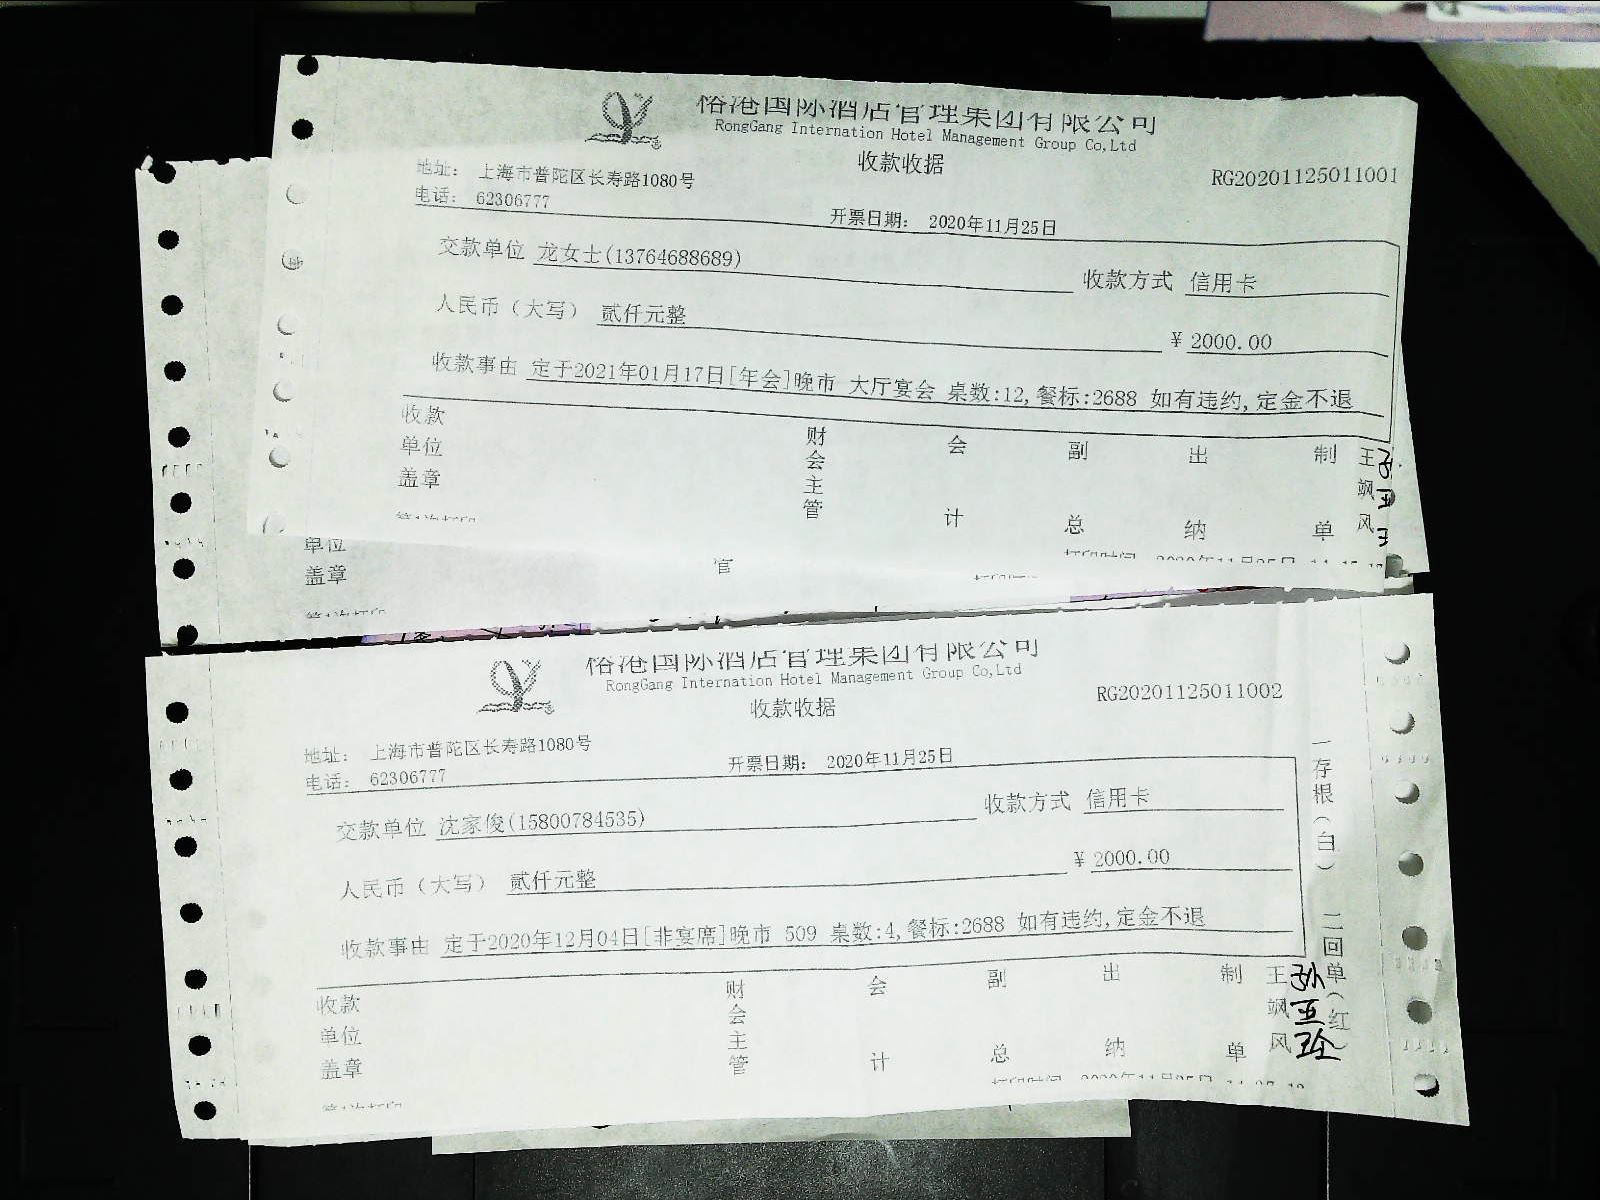 裕港国际酒店管理集团有限公司
RongGang Internation Hotel Management Group Co,Ltd
收款收据
RG20201125011001
地址: 上海市普陀区长寿路1080号
电话: 62306777
开票日期: 2020年11月25日
交款单位 龙女士(13764688689)
收款方式 信用卡
人民币（大写） 贰仟元整
¥ 2000.00
收款事由 定于2021年01月17日[年会]晚市 大厅宴会 桌数:12,餐标:2688 如有违约,定金不退
收款单位盖章
财会主管
会计
副总
出纳
制单
王飒风
单位
盖章
管
裕港国际酒店管理集团有限公司
RongGang Internation Hotel Management Group Co,Ltd
收款收据
RG20201125011002
地址: 上海市普陀区长寿路1080号
电话: 62306777
开票日期: 2020年11月25日
交款单位 沈家俊(15800784535)
收款方式 信用卡
人民币（大写） 贰仟元整
¥ 2000.00
收款事由 定于2020年12月04日[非宴席]晚市 509 桌数:4,餐标:2688 如有违约,定金不退
收款单位盖章
财会主管
会计
副总
出纳
制单
王飒风
一存根(白) 二回单(红)